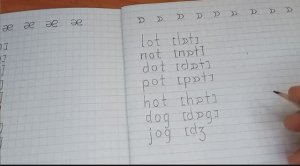 æ æ æ æ
ɒ ɒ ɒ ɒ ɒ ɒ ɒ ɒ ɒ
lot [lɒt]
not [nɒt]
dot [dɒt]
pot [pɒt]
hot [hɒt]
dog [dɒg]
jog [dʒ